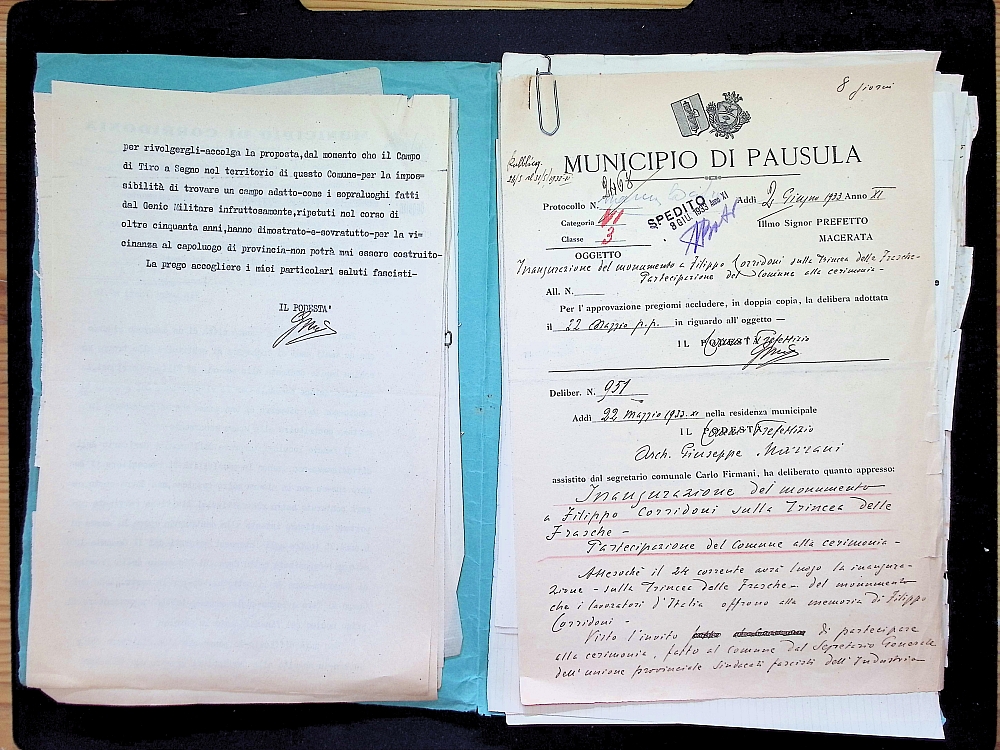 per rivolgergli-accolga la proposta,dal momento che il Campo
di Tiro a Segno nel territorio di questo Comune-per la impos=
sibilità di trovare un campo adatto-come i sopraluoghi fatti
dal Genio Militare infruttosamente,ripetuti nel corso di
oltre cinquanta anni,hanno dimostrato-e-sovratutto-per la vi=
cinanza al capoluogo di provincia-non potrà mai essere costruito-
La prego accogliere i miei particolari saluti fascisti-
IL PODESTA'
8 giorni
MUNICIPIO DI PAUSULA
Pubblicaz.
Protocollo N. 2467
Addì 2 Giugno 1933 Anno XI
SPEDITO
3 GIU. 1933 Anno XI
Categoria VI
Classe 3
Illmo Signor PREFETTO
MACERATA
OGGETTO
Inaugurazione del monumento a Filippo Corridoni sulla Trincea delle Frasche-
Partecipazione del Comune alla cerimonia-
All. N.
Per l' approvazione pregiomi accludere, in doppia copia, la delibera adottata
il 22 Maggio p.p. in riguardo all' oggetto —
IL PODESTÀ Prefettizio
Deliber. N. 951
Addì 22 Maggio 1933-XI nella residenza municipale
IL PODESTÀ Prefettizio
Arch. Giuseppe Marrani
assistito dal segretario comunale Carlo Firmani, ha deliberato quanto appresso:
Inaugurazione del monumento
a Filippo Corridoni sulla Trincea delle
Frasche-
Partecipazione del Comune alla cerimonia-
Attesochè il 24 corrente avrà luogo la inaugura-
zione - sulla Trincea delle Frasche - del monumento
che i lavoratori d'Italia offrono alla memoria di Filippo
Corridoni-
Visto l'invito di partecipare
alla cerimonia, fatto al Comune dal Segretario Generale
dell'unione provinciale Sindacati fascisti dell'Industria